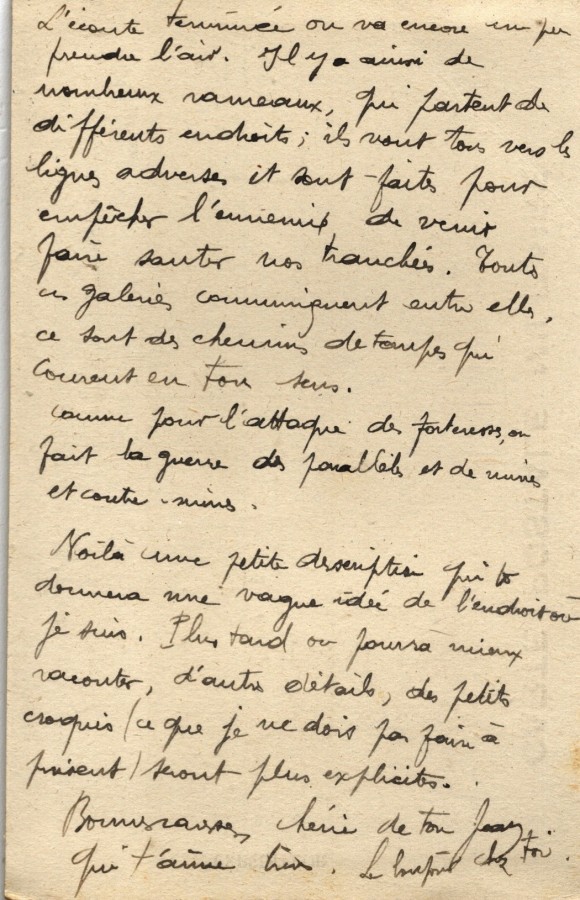 L'écoute terminée on va encore un peu
prendre l'air. Il y a ainsi de
nombreux rameaux, qui partent de
différents endroits; ils vont tous vers les
lignes adverses et sont faites pour
empêcher l'ennemi de venir
faire sauter nos tranchées. Toutes
ces galeries communiquent entre elles,
ce sont des chemins de taupes qui
courent en tous sens.
comme pour l'attaque des forteresses, on
fait la guerre des parallèles et de mines
et contre-mines.
Voilà une petite description qui te
donnera une vague idée de l'endroit où
je suis. Plus tard on pourra mieux
raconter, d'autres détails, des petits
croquis (ce que je ne dois pas faire à
présent) seront plus explicites.
Bonnes caresses chérie de ton Jean
qui t'aime bien. Le bonjour chez toi.